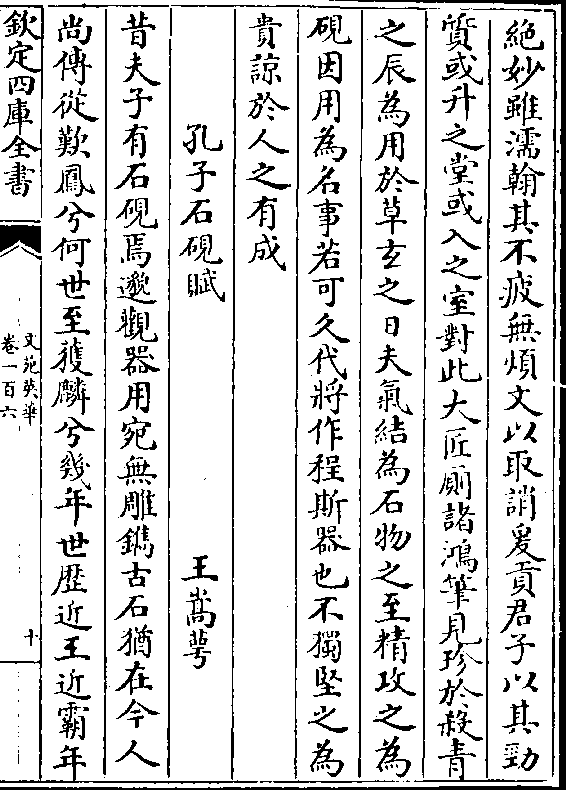 絶妙雖濡翰其不疲無煩文以取誚爰貢君子以其勁
質或升之堂或入之室對此大匠厠諸鴻筆見珍於殺青
之辰為用於草玄之日夫氣結為石物之至精攻之為
硯因用為名事若可久代將作程斯器也不獨堅之為
貴諒於人之有成
孔子石硯賦 王嵩萼
昔夫子有石硯焉邈觀器用宛無雕鐫古石猶在今人
尚傳從歎鳳兮何世至獲麟兮幾年世歴近王近霸年
欽定四庫全書
文苑英華
卷一百六
十